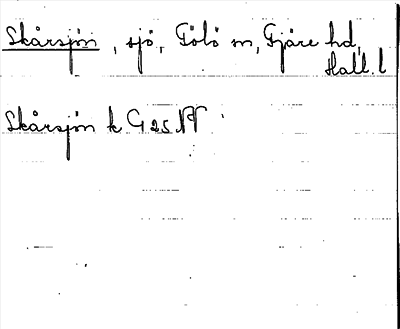 Skårsjön, sjö, Fjäre hd,
Hall. l
Skårsjön k G 25 NV